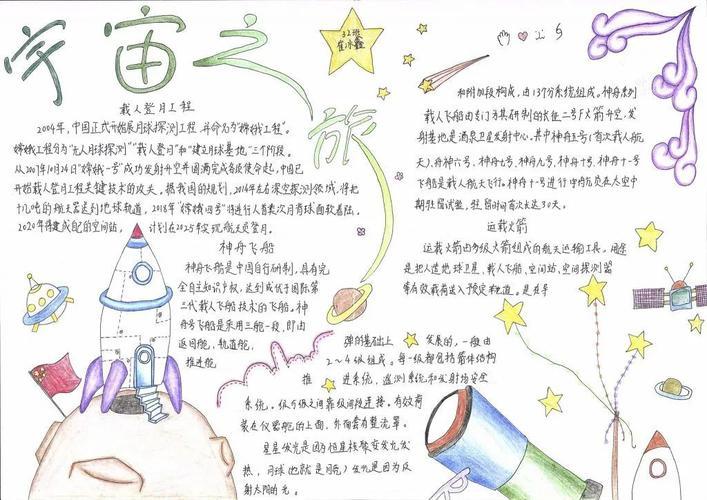 宇宙之旅
32班
载人登月工程
2004年，中国正式开始展月球探测工程，并命名为“嫦娥工程”。
嫦娥工程分为“无人月球探测”“载人登月”和“建立月球基地”三个阶段。
从2007年10月24日“嫦娥一号”成功发射升空并圆满完成各段使命起，中国已
开始载人登月工程关键技术的攻关。据我国的规划，2016年左右深空探测领域，将把
十几吨的航天器送到地球轨道，2018年“嫦娥四号”将进行人首类次月背球面软着陆。
2020年将建成配的空间站，计划在2025年实现航天员登月。
神舟飞船
神舟飞船是中国自行研制，具有完
全自主知识产权，达到或优于国际第
三代载人飞船技术的飞船。神
舟号飞船是采用三舱一段，即由
返回舱，轨道舱，
推进舱
和附加段构成，由13个分系统组成。神舟系列
载人飞船由专门为其研制的长征二号F火箭升空，发
射基地是酒泉卫星发射中心。其中神舟五号（首次载人航
天），神舟六号，神舟七号，神舟九号，神舟十号，神舟十一号
飞船是载人航天飞行。神舟十一号进行中期在太空中
期驻留试验，驻留时间首次长达30天。
运载火箭
运载火箭由多级火箭组成的航天运输工具。用途
是把人造地球卫星，载人飞船，空间站，空间探测器
等有效载荷送入预定轨道。是在导
弹的基础上发展的，一般由
2～4级组成。每一级都包括箭体结构
推进系统，遥测系统和发射场安全
系统。级与级之间靠级间段连接。有效荷
装在仪器舱的上面，外面套有整流罩。
星星发光是因为恒星核聚变发光发
热，月球（也就是月亮）发光是因为反
射太阳的光。